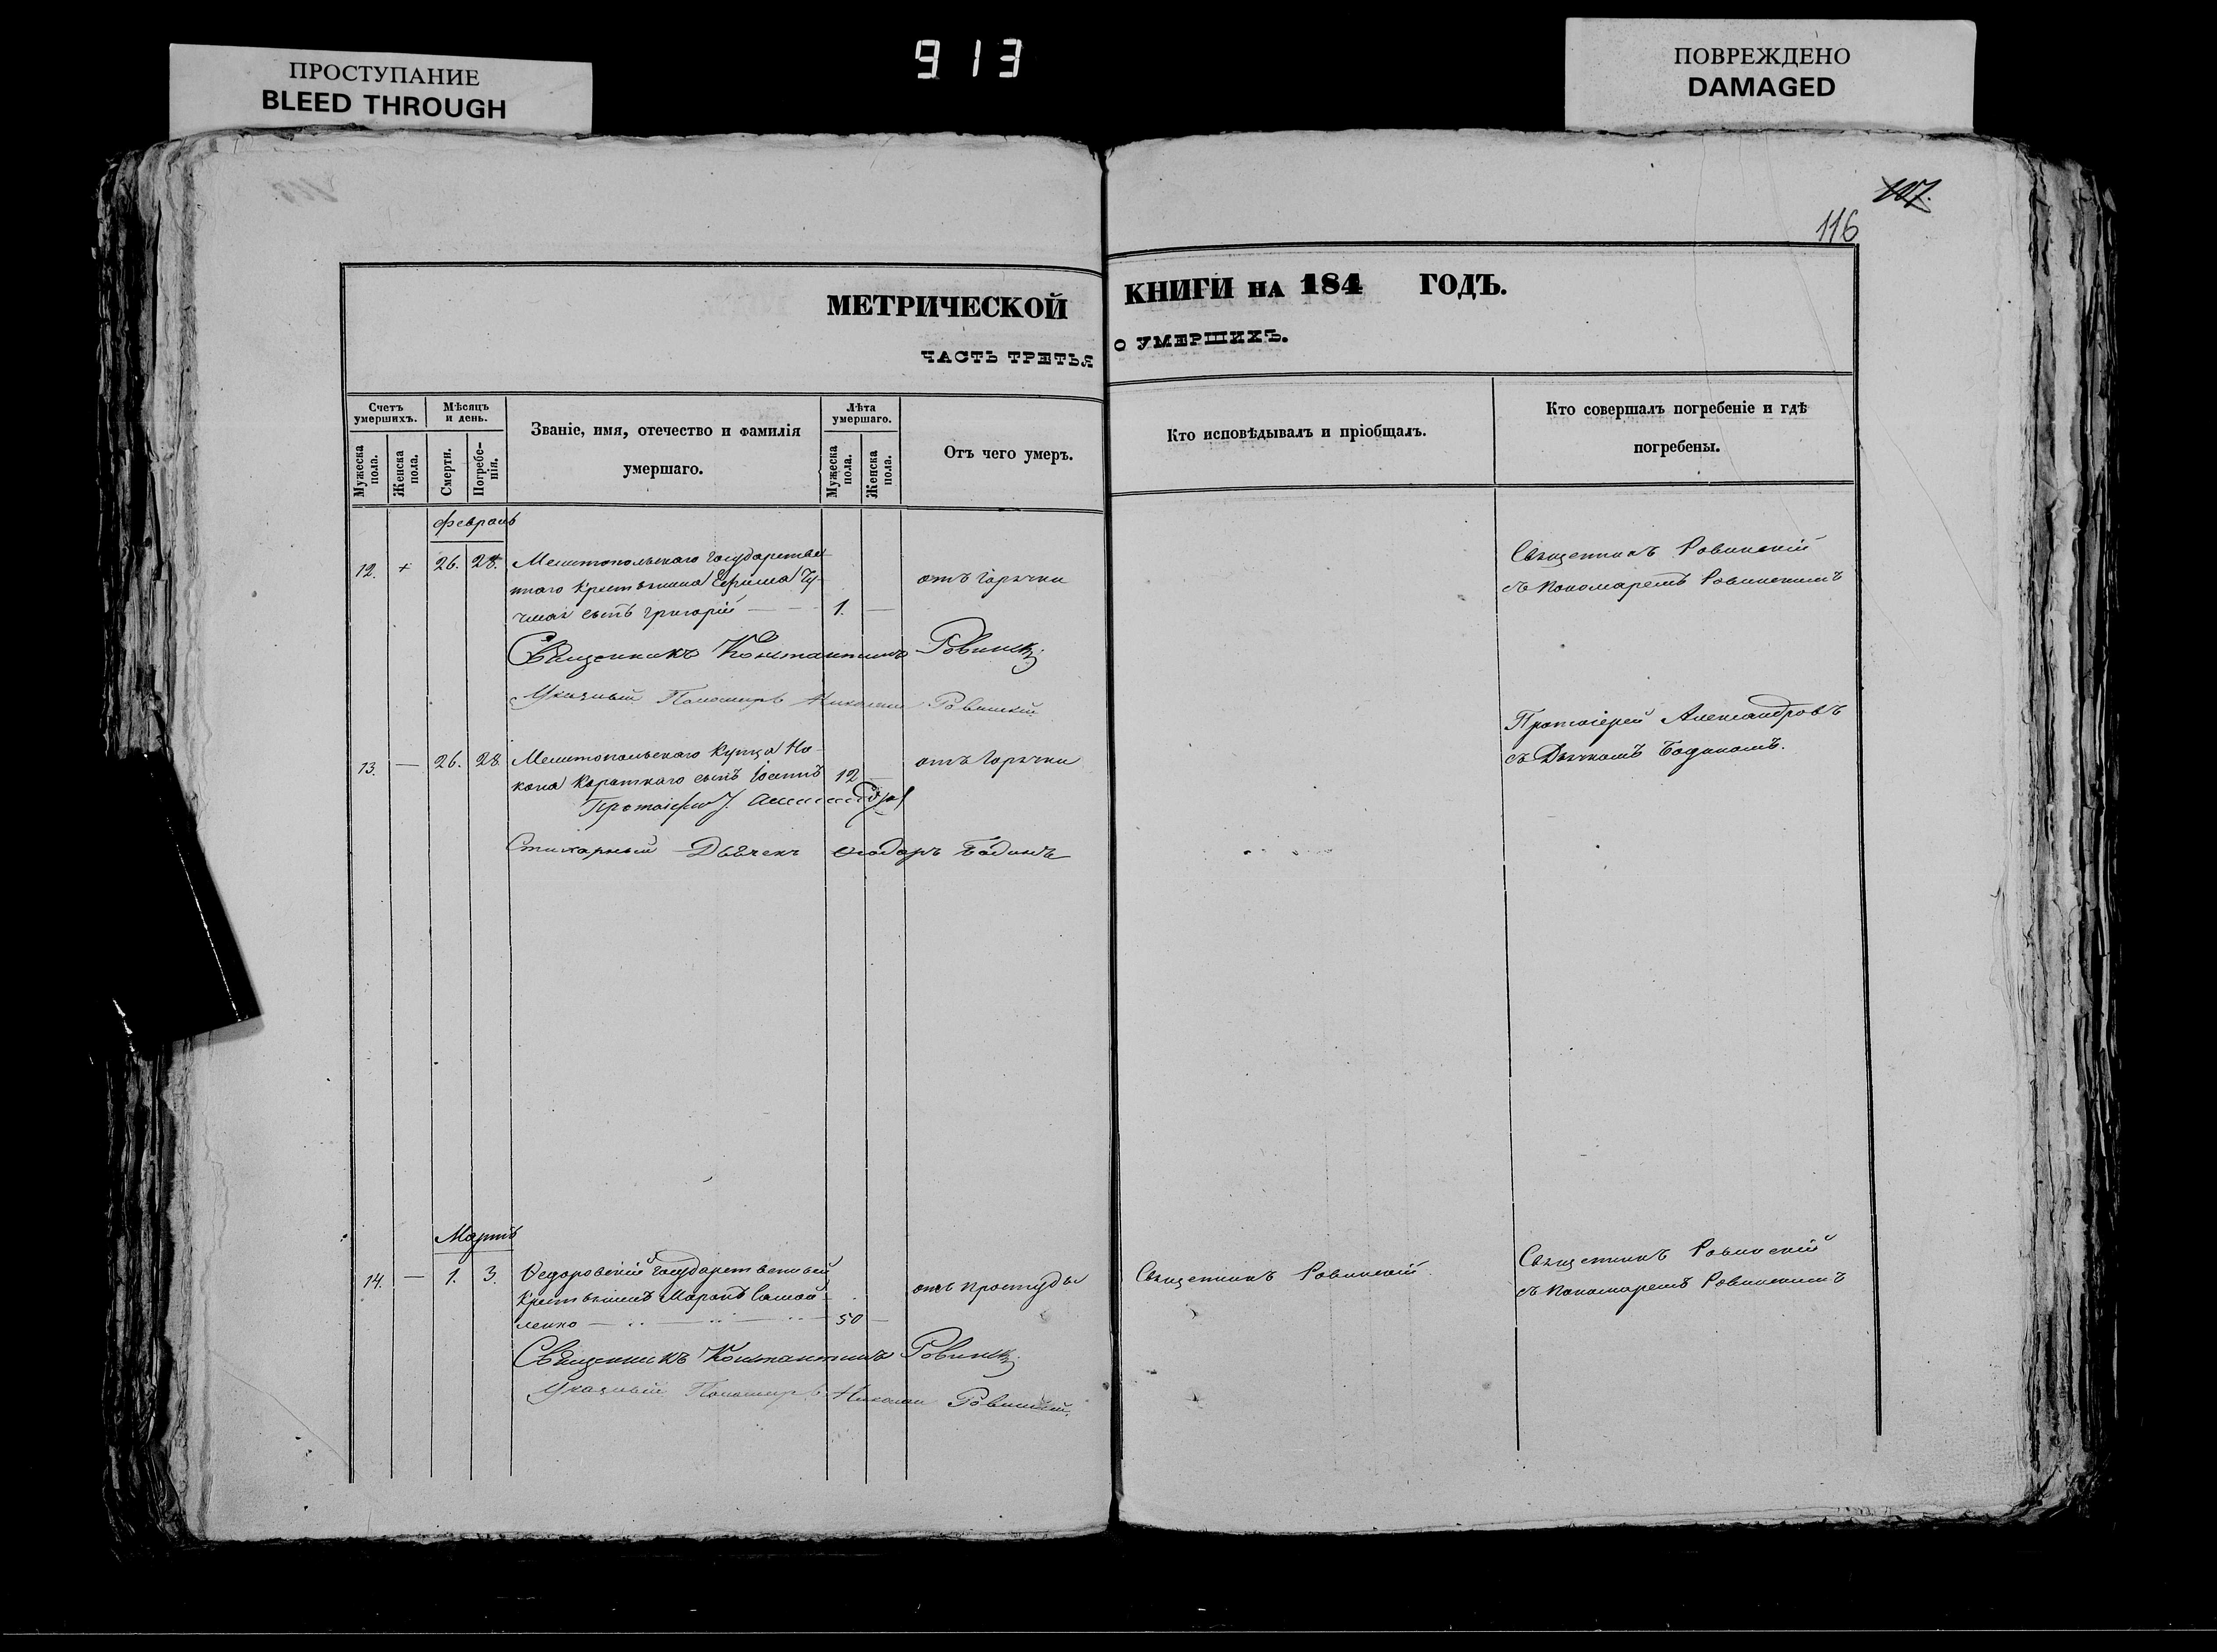 913
ПРОСТУПАНИЕ
BLEED THROUGH
ПОВРЕЖДЕНО
DAMAGED
117.
116
МЕТРИЧЕСКОЙ КНИГИ НА 184 ГОДЪ.
ЧАСТЬ ТРЕТЬЯ О УМЕРШИХЪ.
Счетъ умершихъ.
Мужеска пола.
Женска пола.
Мѣсяцъ и день.
Смерти.
Погребенія.
Званіе, имя, отечество и фамилія
умершаго.
Лѣта умершаго.
Мужеска пола.
Женска пола.
Отъ чего умеръ.
Кто исповѣдывалъ и пріобщалъ.
Кто совершалъ погребеніе и гдѣ
погребены.
Февраль
12. + 26. 28. Мелитопольскаго Государствен-
наго Крестьянина Ефима Чу-
сынъ Григорій 1. —
отъ Горячки
Священникъ Ровинскій
съ Пономаремъ Ровинскимъ
Священникъ Константинъ Ровинскій
Указный Пономарь Николай Ровинскій
13. — 26. 28 Мелитопольскаго Купца Но-
кона Короткаго сынъ 12 —
отъ Горячки
Протоіерей Александровъ
съ Дьячкомъ Бодяномъ.
Протоіерей Александровъ
Стихарный Дьячекъ Ѳеодоръ Бодянъ
Мартъ
14. — 1. 3. Ѳедоровскій Государственный
Крестьянинъ Самой-
ленко — 50 —
отъ простуды
Священникъ Ровинскій
Священникъ Ровинскій
съ Пономаремъ Ровинскимъ
Священникъ Константинъ Ровинскій
Указный Пономарь Николай Ровинскій.